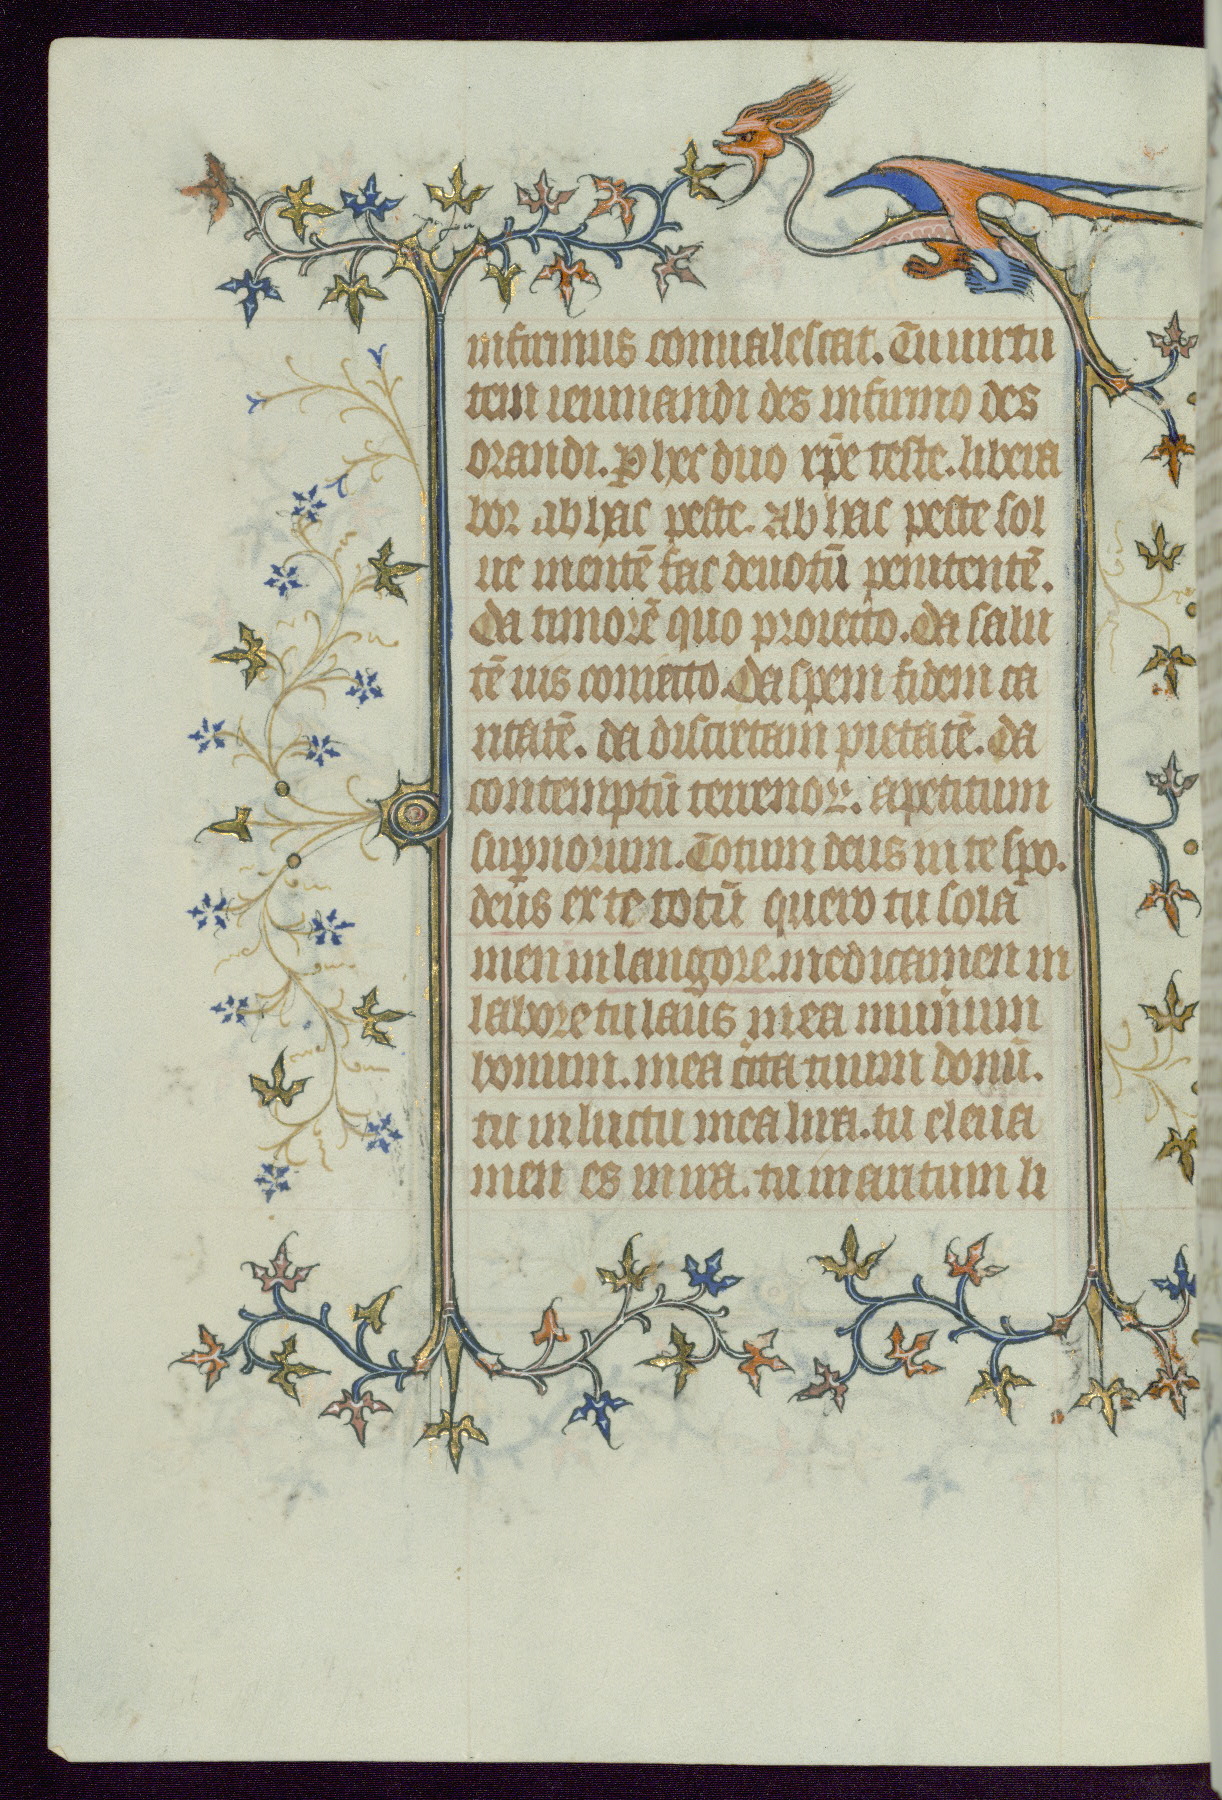 infirmus conualescat. Tu uirtu
tem ieiunandi des infirmo des
orandi. ꝑ hec duo xp̄e teste. libera
bor ab hac peste. Ab hac peste sol
ue mentē fac deuotū penitentē.
Da timorē quo proiecto. Da salu
tē uis coniecto. Da spem fidem ca
ritatē. da discretam pietatē. Da
contemptū terrenoꝝ. apetitum
suꝑnorum. Totum deus in te spo.
deūs ex te totū quero tu sola
men in langore. medicamen in
labore tu laūs mea munūm
bonum. mea cūta tuum donū.
tu in luctu mea lira. tu eleua
men es in ira. tu in antum li